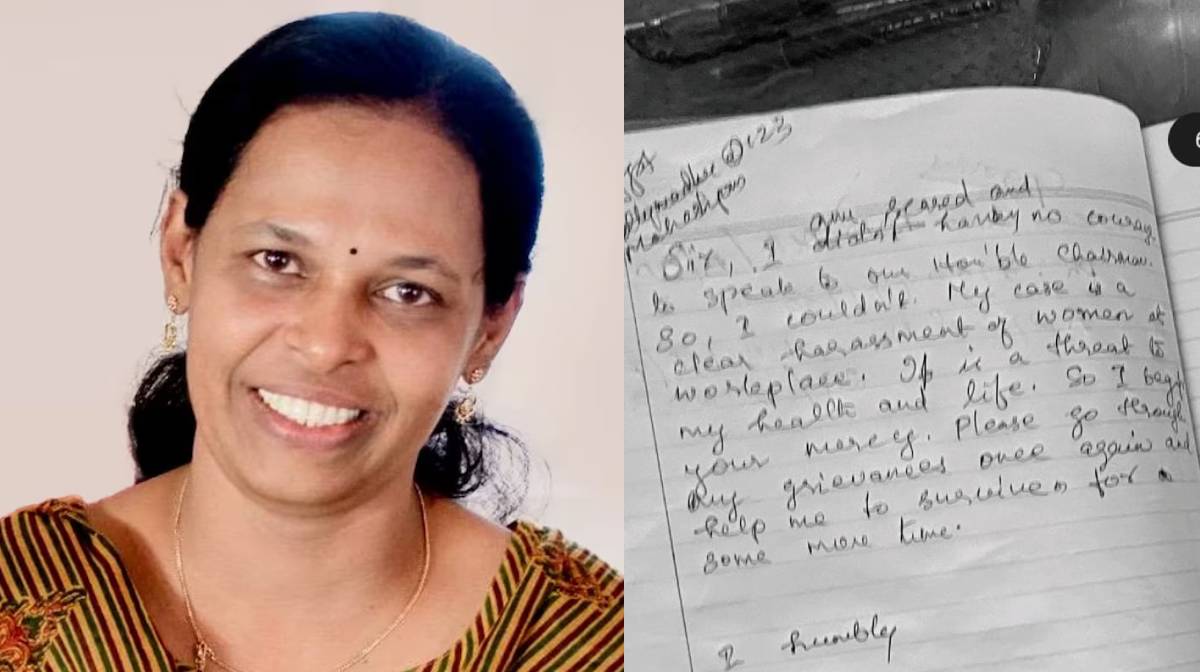 @123
Sir, I am scared and
didn't having no courage
to speak to our Hon'ble Chairman.
So, I couldn't. My case is a
clear harassment of women at
workplace. It is a threat to
my health and life. So I beg
your mercy. Please go through
my grievances once again and
help me to survive for
some more time.
I humbly